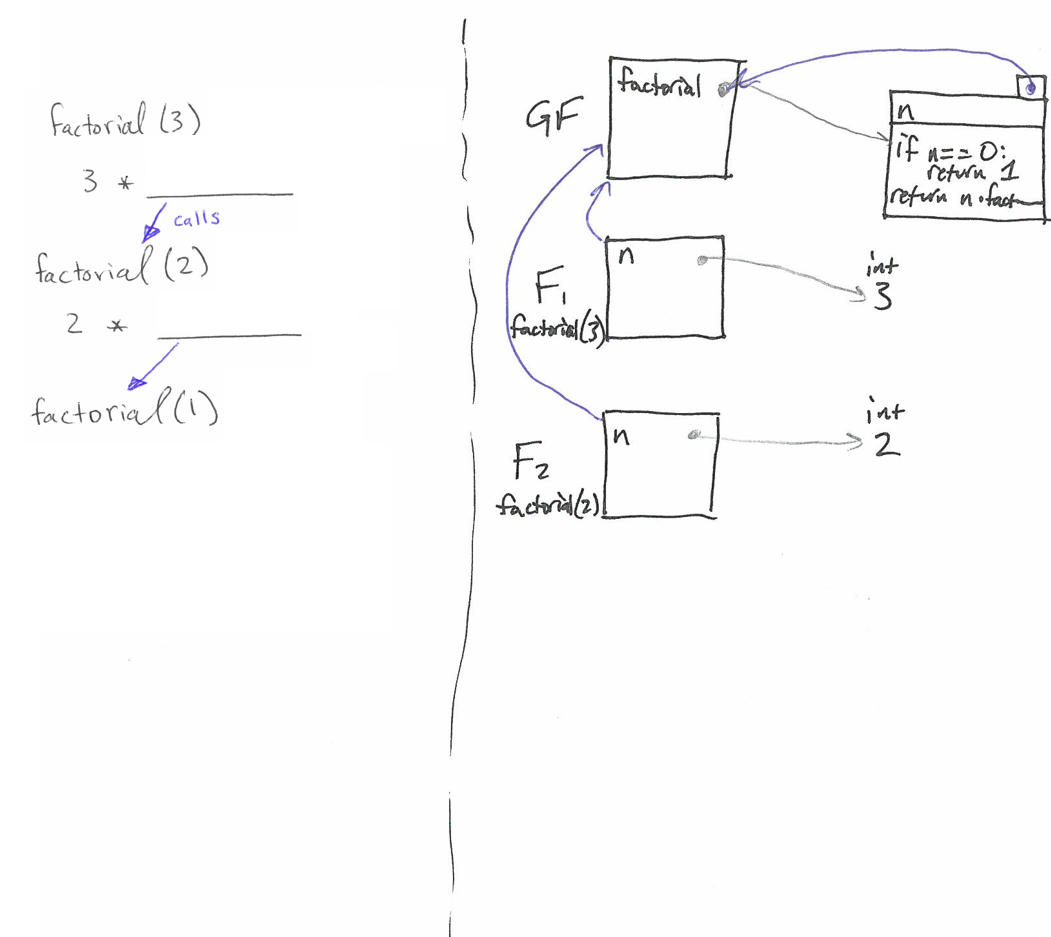 factorial (3)
3 * ________
calls
factorial (2)
2 * ________
factorial (1)
GF
factorial
n
if n == 0:
return 1
return n · fact
F1
factorial(3)
n
int
3
F2
factorial(2)
n
int
2